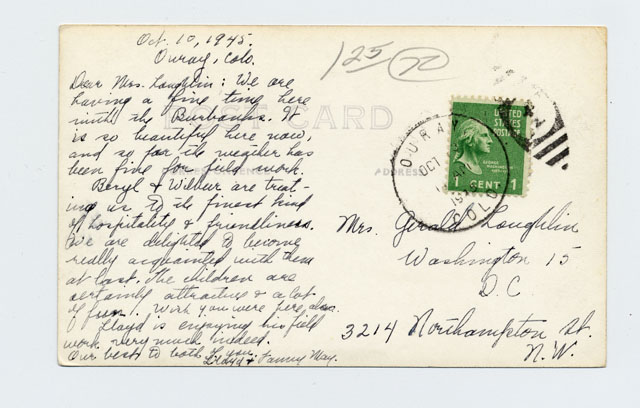 Oct. 10, 1945.
Ouray, Colo.
Dear Mrs. Loughlin: We are
having a fine time here
with the Burbanks. It
is so beautiful here now,
and so far the weather has
been fine for field work.
Beryl & Wilbur are treat-
ing us to the finest kind
of hospitality & friendliness.
We are delighted to become
really acquainted with them
at last. The children are
certainly attractive & a lot
of fun! Wish you were here, also.
Lloyd is enjoying his field
work very much indeed.
Our best to both of you,
Lloyd & Fanny May.
125
70
POST CARD
ADDRESS
OURAY
OCT
COLO
UNITED
STATES
POSTAGE
GEORGE
WASHINGTON
1 CENT 1
Mrs. Gerald Loughlin
Washington 15
D.C.
3214 Northampton St.
N.W.